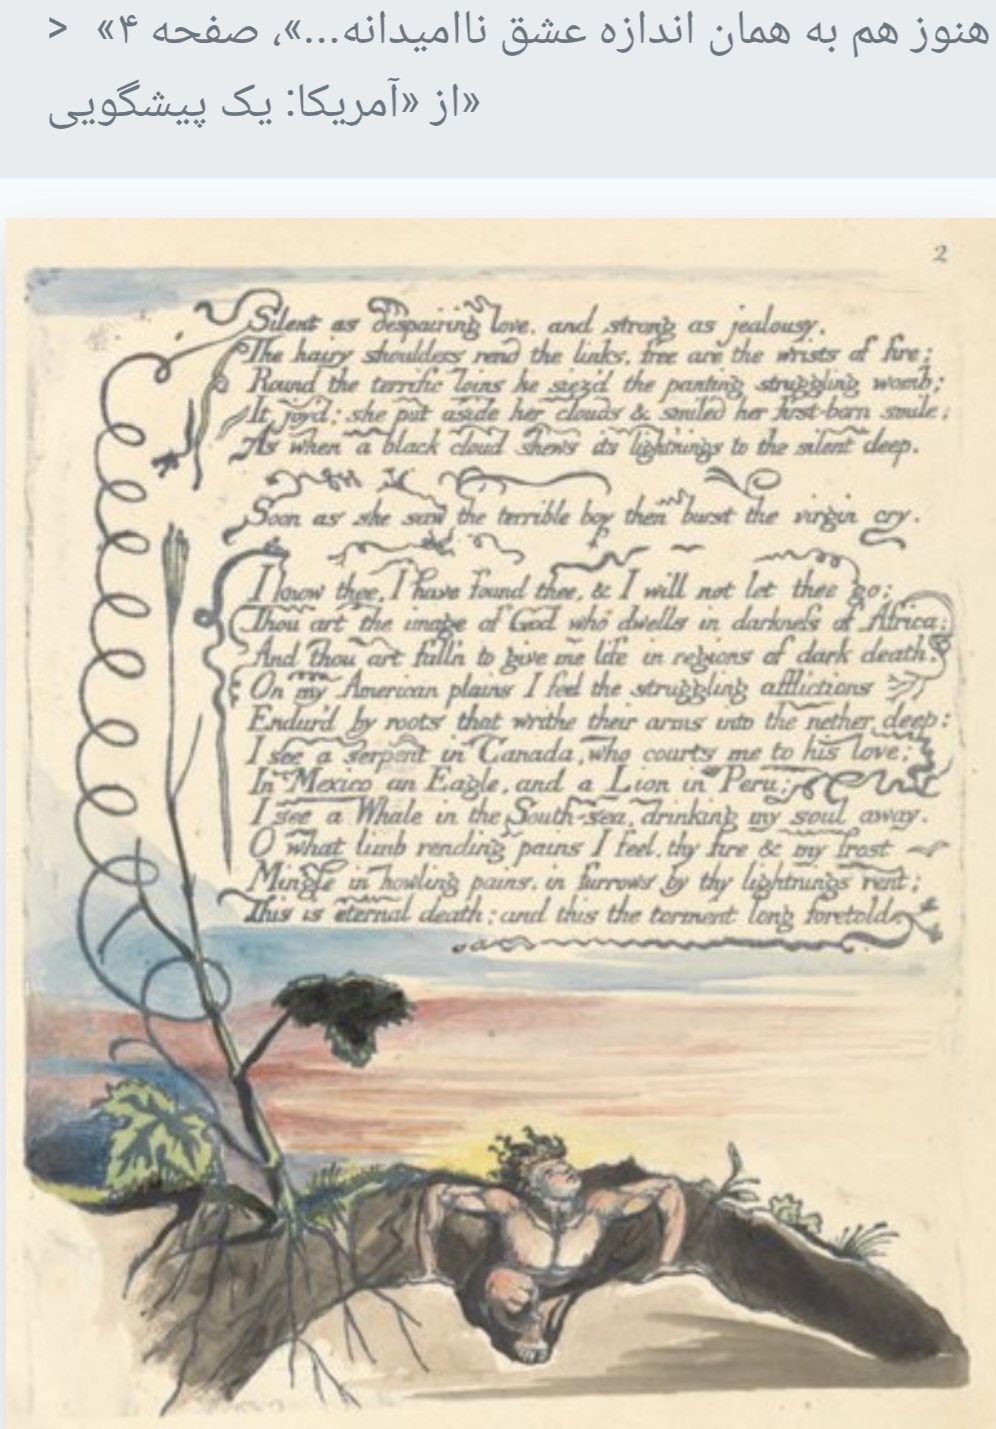 هنوز هم به همان اندازه عشق ناامیدانه...»، صفحه ۴» >
«از «آمریکا: یک پیشگویی
2
Silent as despairing love, and strong as jealousy,
The hairy shoulders rend the links, free are the wrists of fire;
Round the terrific loins he siez'd the panting struggling womb;
It joy'd: she put aside her clouds & smiled her first-born smile;
As when a black cloud shews its lightnings to the silent deep.
Soon as she saw the terrible boy then burst the virgin cry.
I know thee, I have found thee, & I will not let thee go;
Thou art the image of God who dwells in darkness of Africa;
And thou art fall'n to give me life in regions of dark death.
On my American plains I feel the struggling afflictions
Endur'd by roots that writhe their arms into the nether deep:
I see a serpent in Canada, who courts me to his love;
In Mexico an Eagle, and a Lion in Peru;
I see a Whale in the South-sea, drinking my soul away.
O what limb rending pains I feel, thy fire & my frost
Mingle in howling pains, in furrows by thy lightnings rent;
This is eternal death; and this the torment long foretold.